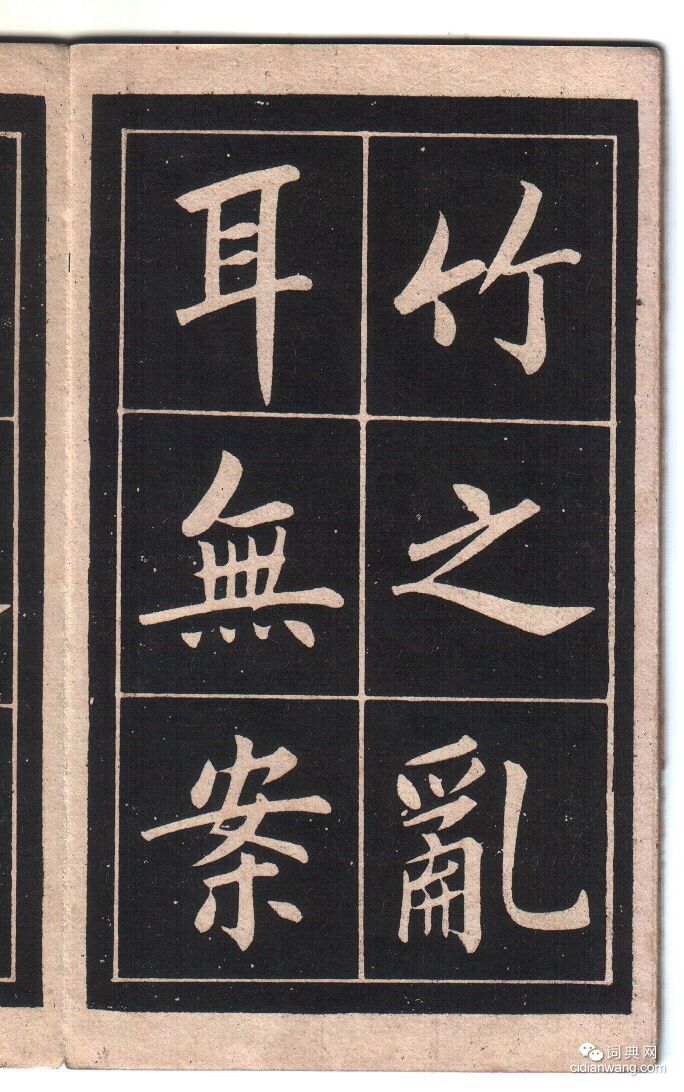 竹之亂
耳無案
词典网
cidianwang.com